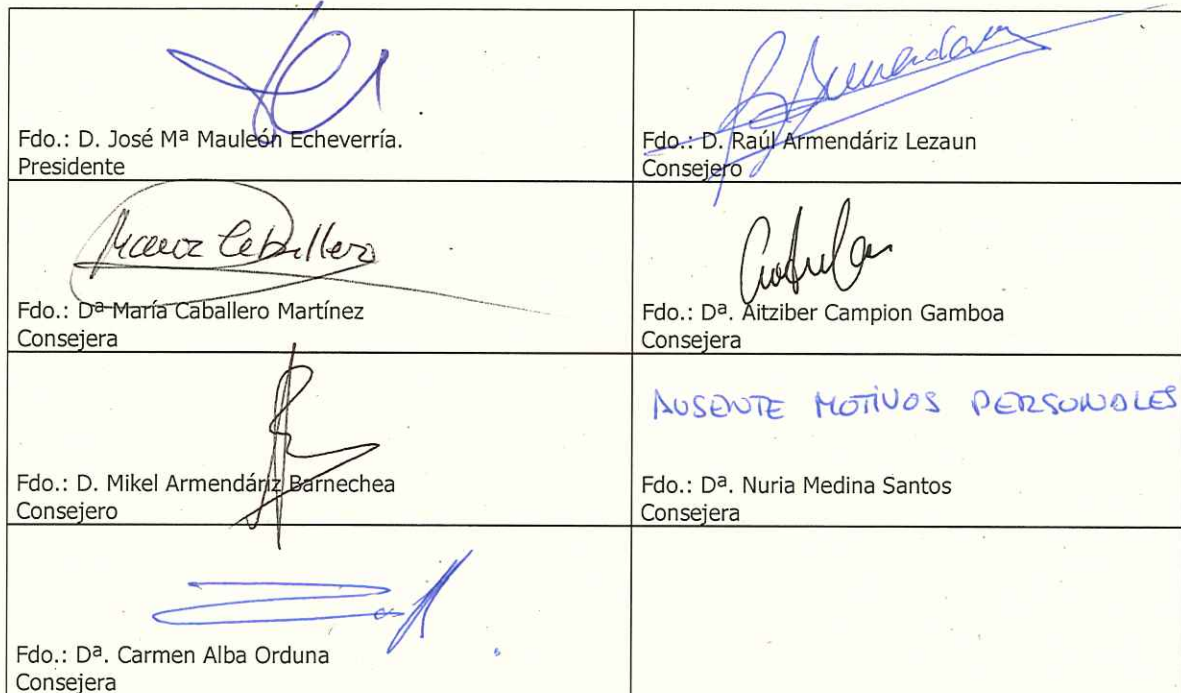 Fdo.: D. José Mª Mauleón Echeverría.
Presidente
Armendariz
Fdo.: D. Raúl Armendáriz Lezaun
Consejero
María Caballero
Fdo.: Dª María Caballero Martínez
Consejera
Fdo.: Dª. Aitziber Campion Gamboa
Consejera
Fdo.: D. Mikel Armendáriz Barnechea
Consejero
AUSENTE MOTIVOS PERSONALES
Fdo.: Dª. Nuria Medina Santos
Consejera
Fdo.: Dª. Carmen Alba Orduna
Consejera